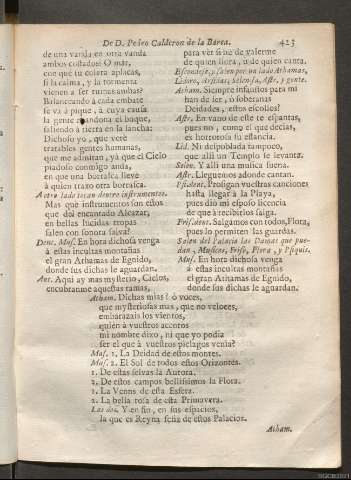 De D. Pedro Calderon de la Barca. 423
de una vanda en otra vanda
ambos costados! O mar,
con què tu colera aplacas,
si la calma, y la tormenta
vienen a ser furias ambas?
Balanceando à cada embate
se va à pique, à cuya causa
la gente abandona el buque,
saliendo à tierra en la lancha:
Dichoso yo, que veré
tratables gentes humanas,
que me admitan, yà que el Cielo
piadoso comigo anda,
en que una borrasca lleve
à quien traxo otra borrasca.
A otro lado tocan dentro instrumentos.
Mas què instrumentos son estos
que del encantado Alcazar,
en bellas lucidas tropas
salen con sonora salva?
Dent. Mus. En hora dichosa venga
à estas incultas montañas
el gran Athamas de Egnido,
donde sus dichas le aguardan.
Aur. Aqui ay mas mysterio, Cielos,
encubranme aquestas ramas,
para vèr si he de valerme
de quien llora, u de quien canta.
Escondese, y salen por un lado Athamas,
Lidoro, Arsidas, Selenisa, Astr. y gente.
Atham. Siempre infaustos para mi
han de ser, ò soberanas
Deidades, estos escollos?
Astr. En vano de este te espantas,
pues no, como el que decias,
es horrorosa su estancia.
Lid. Ni despoblada tampoco,
que alli un Templo se levanta.
Selen. Y alli una musica suena.
Astr. Lleguemos adonde cantan.
Dent. Prosigan vuestras canciones
hasta llegar à la Playa,
pues dió mi esposo licencia
de que à recibirlos salga.
Fris. dent. Salgamos con todos, Flora,
pues lo permiten las guardas.
Salen del Palacio las Damas que puedan, Musicos, Friso, Flora, y Psiquis.
Mus. En hora dichosa venga
à estas incultas montañas
el gran Athamas de Egnido,
donde sus dichas le aguardan.
Atham. Dichas mias! ò voces,
que mysteriosas mas, que no veloces,
embarazais los vientos,
quién à vuestros acentos
mi nombre dixo, ni que yo podia
ser el que à vuestros pielagos venia?
Mus. 1. La Deidad de estos montes.
Mus. 2. El Sol de todos estos Orizontes.
1. De estas selvas la Aurora.
2. De estos campos bellissimos la Flora.
1. La Venus de esta Esfera.
2. La bella rosa de esta Primavera.
Las dos. Y en fin, en sus espacios,
la que es Reyna de estos Palacios.
Atham.